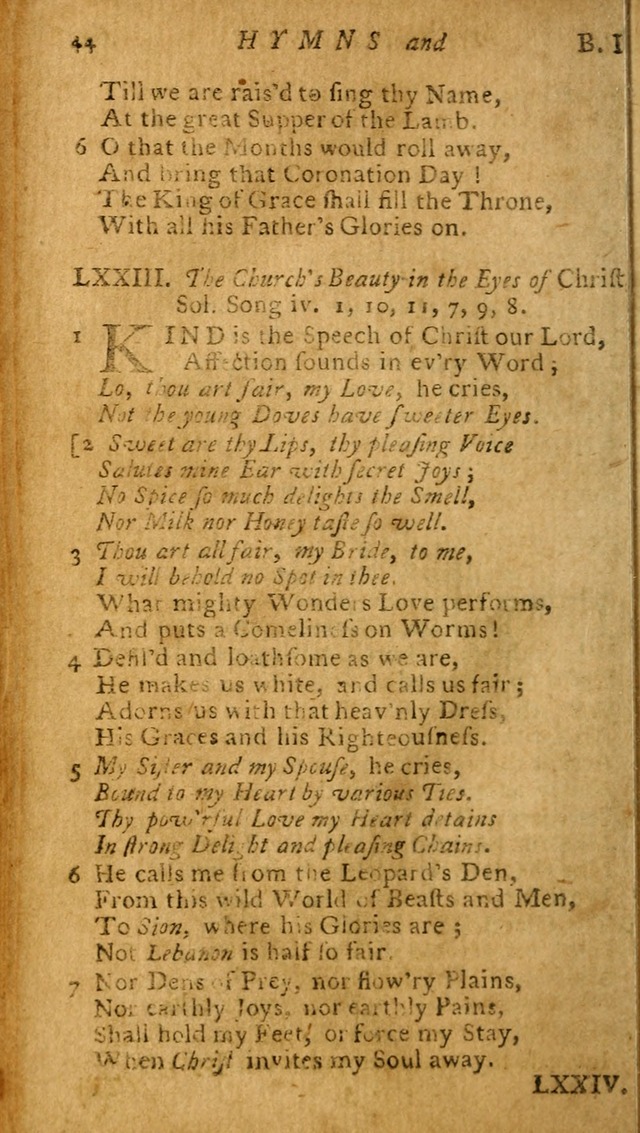 44 HYMNS and B. I
Till we are rais'd to ſing thy Name,
At the great Supper of the Lamb.
6 O that the Months would roll away,
And bring that Coronation Day !
The King of Grace ſhall fill the Throne,
With all his Father's Glories on.
LXXIII. The Church's Beauty in the Eyes of Chriſt
Sol. Song iv. 1, 10, 11, 7, 9, 8.
1 KIND is the Speech of Chriſt our Lord,
Affection ſounds in ev'ry Word ;
Lo, thou art fair, my Love, he cries,
Not the young Doves have ſweeter Eyes.
[2 Sweet are thy Lips, thy pleaſing Voice
Salutes mine Ear with ſecret Joys ;
No Spice ſo much delights the Smell,
Nor Milk nor Honey taſte ſo well.
3 Thou art all fair, my Bride, to me,
I will behold no Spot in thee.
What mighty Wonders Love performs,
And puts a Comelineſs on Worms!
4 Defil'd and loathſome as we are,
He makes us white, and calls us fair ;
Adorns us with that heav'nly Dreſs,
His Graces and his Righteouſneſs.
5 My Siſter and my Spouſe, he cries,
Bound to my Heart by various Ties.
Thy pow'rful Love my Heart detains
In ſtrong Delight and pleaſing Chains.
6 He calls me from the Leopard's Den,
From this wild World of Beaſts and Men,
To Sion, where his Glories are ;
Not Lebanon is half ſo fair.
7 Nor Dens of Prey, nor flow'ry Plains,
Nor earthly Joys, nor earthly Pains,
Shall hold my Feet, or force my Stay,
When Chriſt invites my Soul away.
LXXIV.